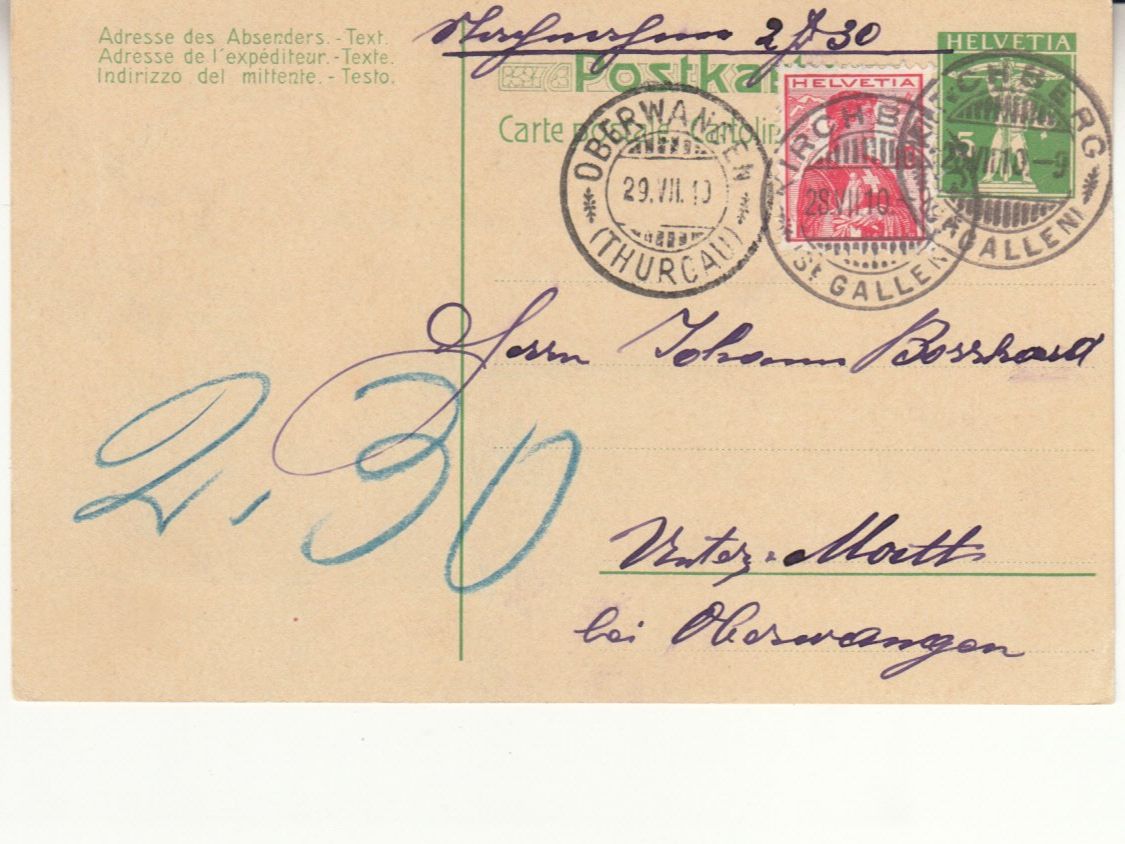 Adresse des Absenders.-Text.
Adresse de l'expéditeur.-Texte.
Indirizzo del mittente.-Testo.
Nachnahme 2 fr 30
Postkar
Carte postale. Cartolin
HELVETIA
5
HELVETIA
OBERWANGEN
29.VII.10
(THURGAU)
KIRCHB
28.VII.10
(St. GALLEN)
KIRCHBERG
28.VII.10-9
(St. GALLEN)
Herrn Johann Bosshard
2.30
Unter-Matt
bei Oberwangen